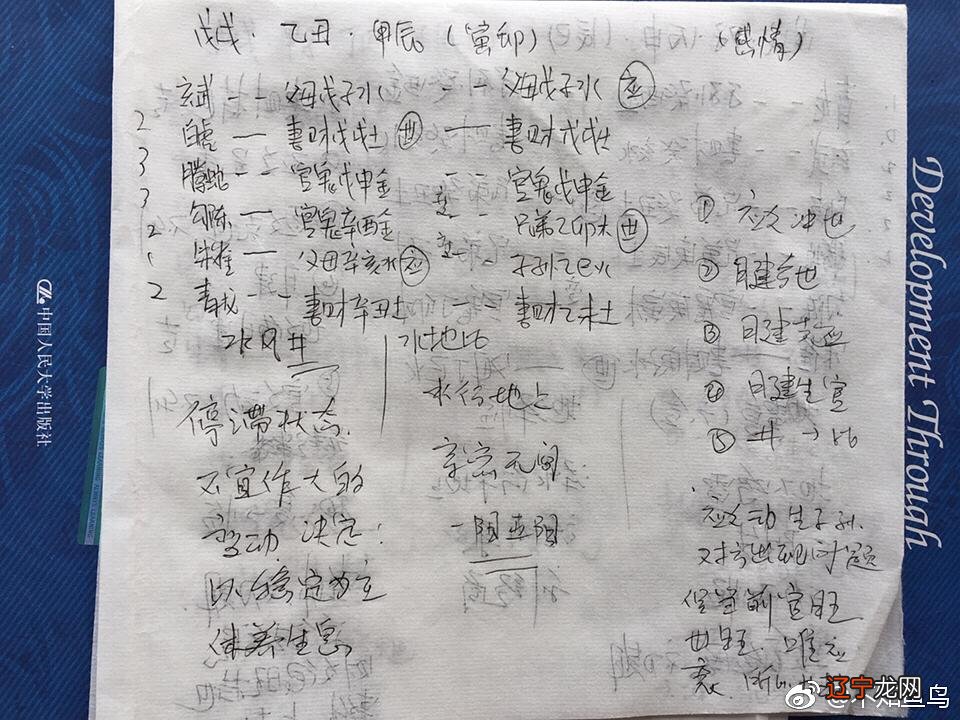 戊戌·乙丑·甲辰（寅卯） （感情）
玄武 -- 父母戊子水 -- 父母戊子水 应
2 白虎 — 妻财戊戌土 世 — 妻财戊戌土
3 腾蛇 -- 官鬼戊申金 -- 官鬼戊申金
3 勾陈 — 官鬼辛酉金 -- 兄弟乙卯木 世
2 朱雀 — 父母辛亥水 应 -- 子孙乙巳火
1
2 青龙 -- 妻财辛丑土 -- 妻财乙未土
水风井 水地比
停滞状态
不宜作大的
变动 决定
以稳定为主
休养生息
水行地上
亲密无间
① 应爻冲世
② 日建
③ 日建克应
④ 日建生官
⑤ 井→比
应爻动生子孙
对方出现问题
官旺
世旺 唯应
衰
中国人民大学出版社
Development Through
辽宁龙网
@不知鱼鸟